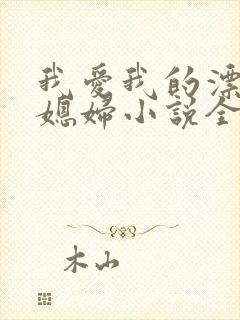 我爱我的漂
媳妇小说全
木山